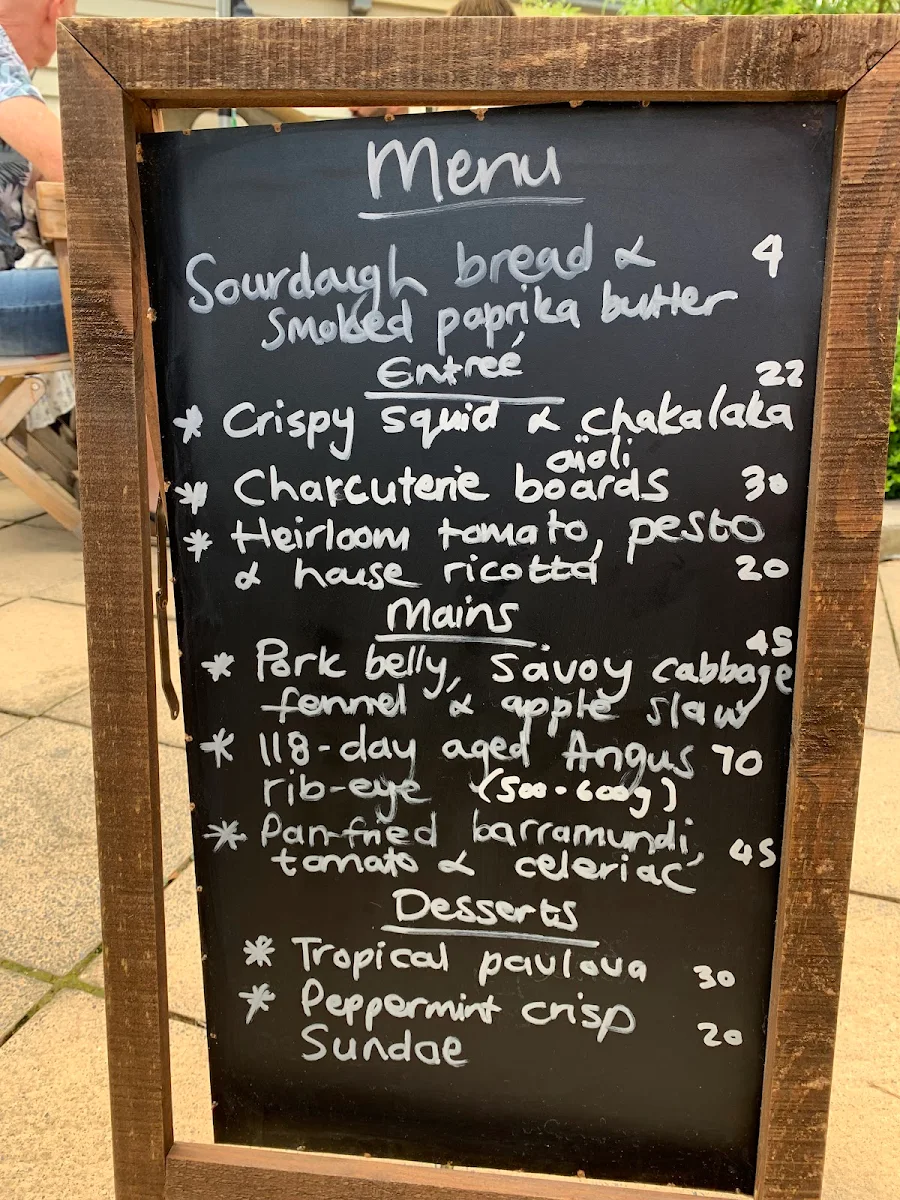 Menu
Sourdough bread & 4
Smoked paprika butter
Entreé
22
* Crispy squid & chakalaka
aïoli
* Charcuterie boards 30
* Heirloom tomato, pesto
& house ricotta 20
Mains
45
* Pork belly, Savoy cabbage
fennel & apple slaw
* 118-day aged Angus 70
rib-eye (500-600g)
* Pan-fried barramundi,
tomato & celeriac 45
Desserts
* Tropical pavlova 30
* Peppermint crisp
Sundae 20